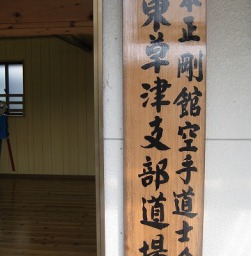 本正剛館空手道士会
東草津支部道場